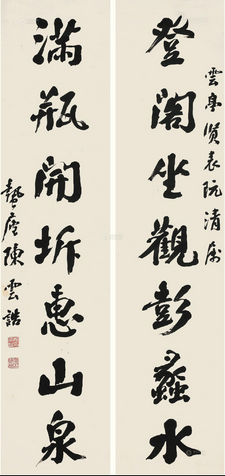 雲亭賢表阮清属
登閣坐觀彭蠡水
滿瓶開坼惠山泉
蟄廬陳雲誥